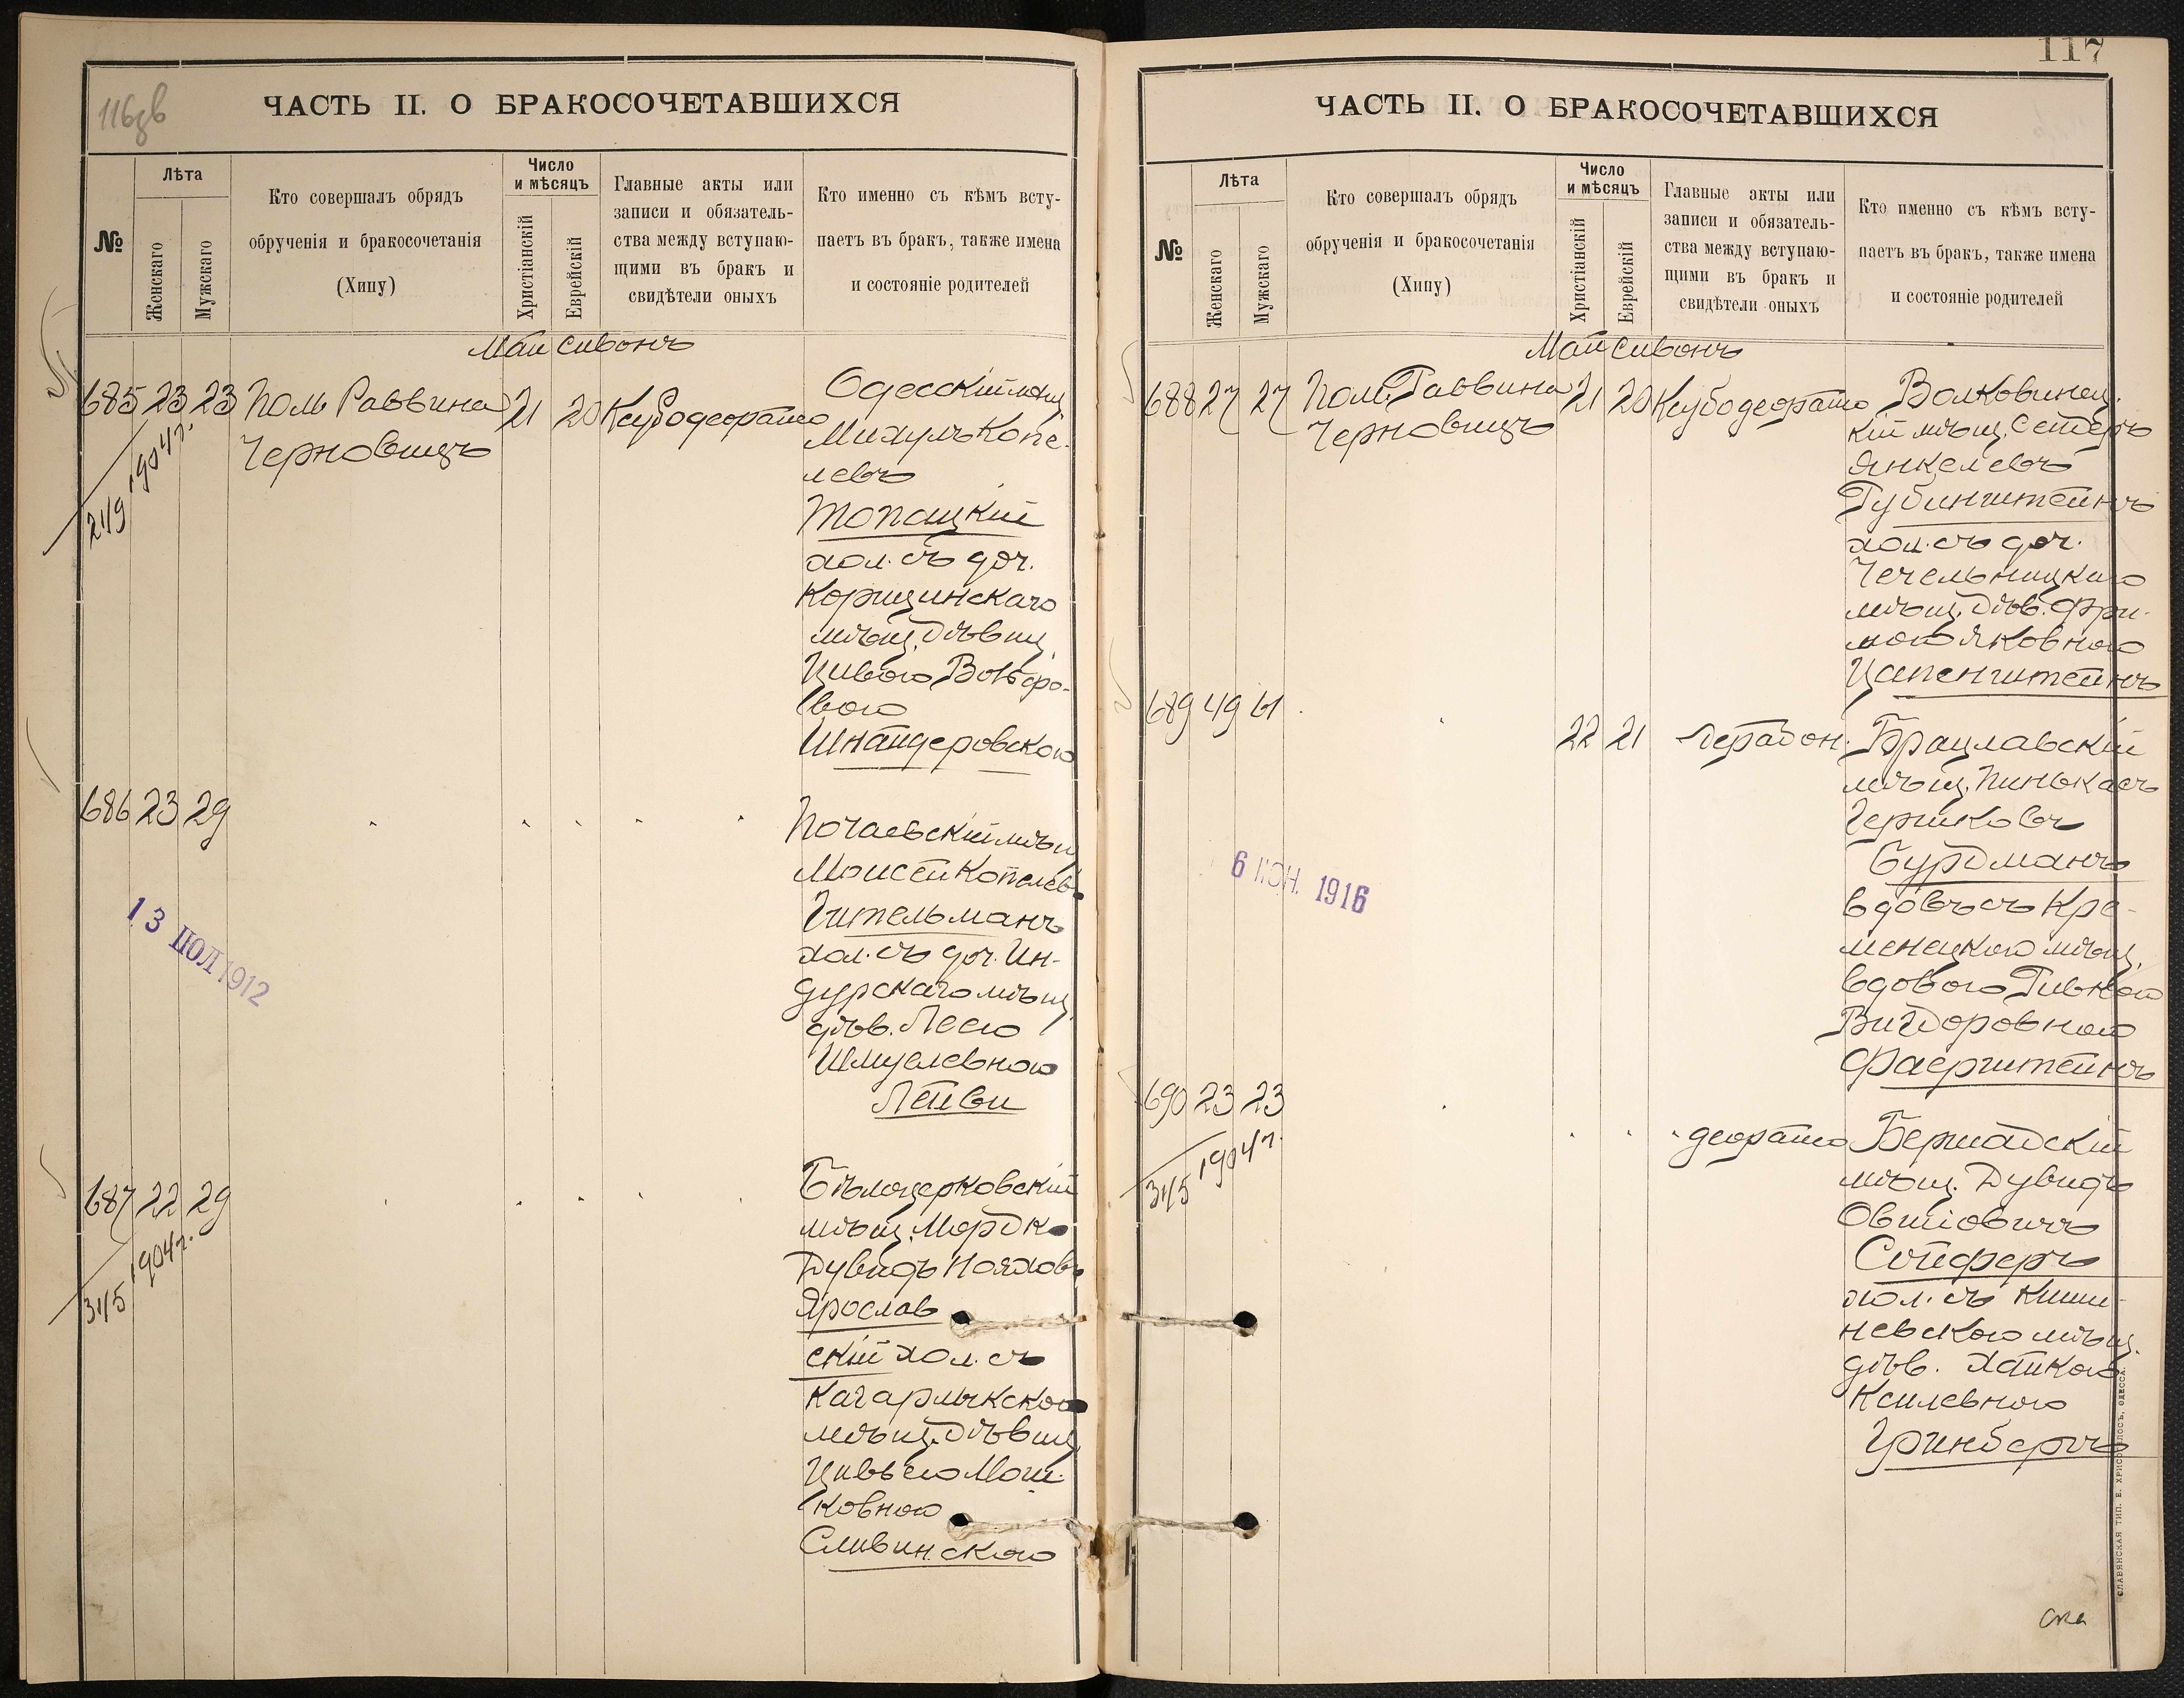 116зв
ЧАСТЬ II. О БРАКОСОЧЕТАВШИХСЯ
№
Лѣта
Женскаго
Мужскаго
Кто совершалъ обрядъ
обрученія и бракосочетанія
(Хипу)
Число
и мѣсяцъ
Христіанскій
Еврейскій
Главные акты или
записи и обязатель-
ства между вступаю-
щими въ бракъ и
свидѣтели оныхъ
Кто именно съ кѣмъ всту-
паетъ въ бракъ, также имена
и состояніе родителей
Май Сивонъ
685 23 23 Пом Раввина 21 20 Ксубодеорайсо
Черновицъ
219 1904 г.
Одесскій мѣщ.
Михуль Копе-
левъ
Топацкій
хол. съ доч.
Коршинскаго
мѣщ. Дѣвиц.
Цивою Вольфо-
вою
Шнайдеровскою
686 23 29
Почаевскій мѣщ.
Моисей Копелев.
Гительманъ
хол. съ доч. Ин-
дурскаго мѣщ.
дѣв. Лею
Шмулевною
Лейви
13 ІЮЛ 1912
687 22 29
315 1904 г.
Бѣлоцерковскій
мѣщ. Мордко
Дувидъ Нояховъ
Ярослав
скій хол. съ
Кагарлыкскою
мѣщ. Дѣвиц.
Цивьею Мош-
ковною
Сливинскою
117
ЧАСТЬ II. О БРАКОСОЧЕТАВШИХСЯ
№
Лѣта
Женскаго
Мужскаго
Кто совершалъ обрядъ
обрученія и бракосочетанія
(Хипу)
Число
и мѣсяцъ
Христіанскій
Еврейскій
Главные акты или
записи и обязатель-
ства между вступаю-
щими въ бракъ и
свидѣтели оныхъ
Кто именно съ кѣмъ всту-
паетъ въ бракъ, также имена
и состояніе родителей
Май Сивонъ
688 27 27 Пом. Раввина 21 20 Ксубодеорайсо
Черновицъ
Волковинец.
кій мѣщ.
Янкелевъ
Рубинштейнъ
хол. съ доч.
Чечельницкаго
мѣщ. Дѣв. Фри-
мою Яковною
Цапенштейнъ
689 49 61
22 21
Брацлавскій
мѣщ. Пинькасъ
Гершковъ
Бурдманъ
вдовъ съ Кре-
менецкою мѣщ.
вдовою Ривкою
Вигдоровною
Фаерштейнъ
6 ІЮН. 1916
690 23 23
315 1904 г.
деорайсо
Бершадскій
мѣщ. Дувидъ
Овшіовичъ
Сойферъ
хол. съ Киши-
невскою мѣщ.
дѣв. Хайкою
Ксилевною
Гринбергъ
СЛАВЯНСКАЯ ТИП. Е. ХРИСОГЕЛОСЪ, ОДЕССА.